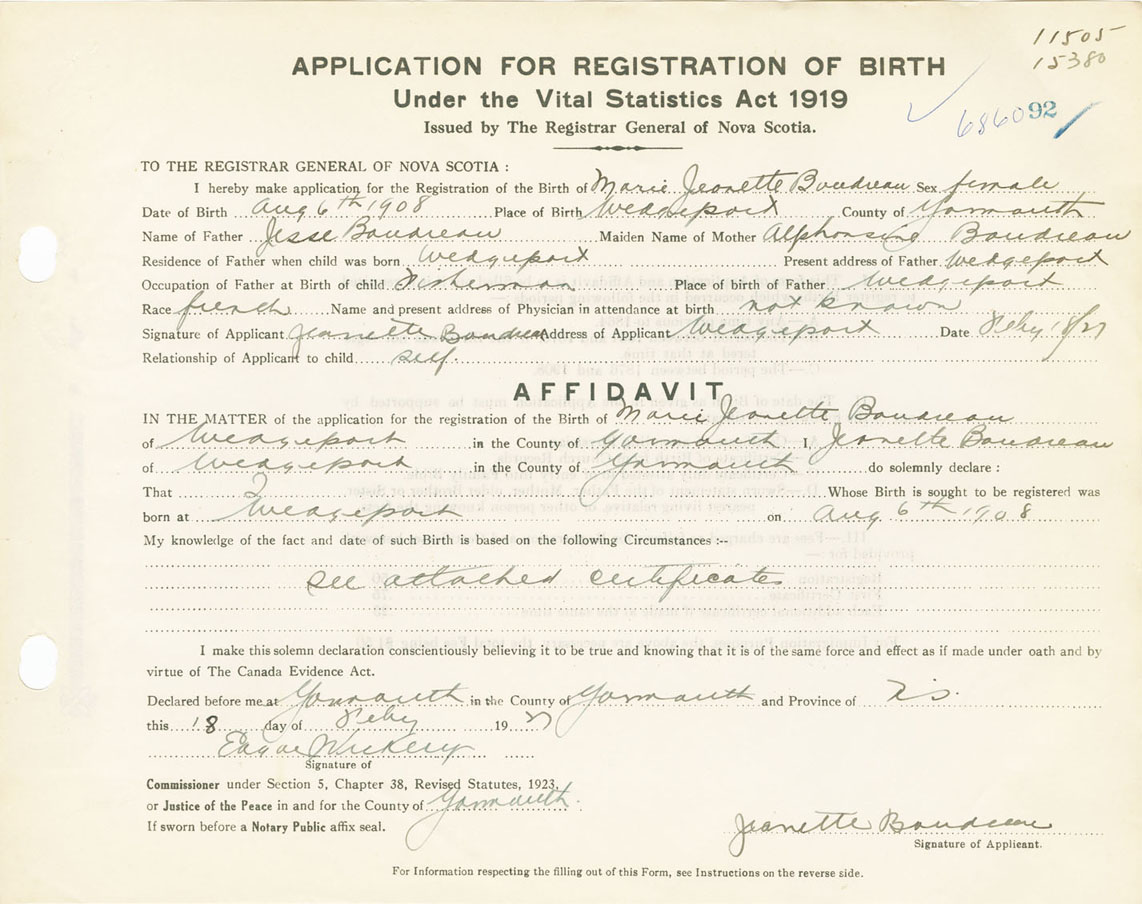 11505
15380
APPLICATION FOR REGISTRATION OF BIRTH
Under the Vital Statistics Act 1919
68609 2
Issued by The Registrar General of Nova Scotia.
TO THE REGISTRAR GENERAL OF NOVA SCOTIA :
I hereby make application for the Registration of the Birth of Marie Jeanette Boudreau Sex female
Date of Birth Aug 6th 1908 Place of Birth Wedgeport County of Yarmouth
Name of Father Jesse Boudreau Maiden Name of Mother Alphonsine Boudreau
Residence of Father when child was born Wedgeport Present address of Father Wedgeport
Occupation of Father at Birth of child Fisherman Place of birth of Father Wedgeport
Race french Name and present address of Physician in attendance at birth not known
Signature of Applicant Jeanette Boudreau Address of Applicant Wedgeport Date Feby 18/27
Relationship of Applicant to child self.
AFFIDAVIT
IN THE MATTER of the application for the registration of the Birth of Marie Jeanette Boudreau
of Wedgeport in the County of Yarmouth I, Jeanette Boudreau
of Wedgeport in the County of Yarmouth do solemnly declare :
That I Whose Birth is sought to be registered was
born at Wedgeport on Aug 6th 1908
My knowledge of the fact and date of such Birth is based on the following Circumstances :--
see attached certificate
I make this solemn declaration conscientiously believing it to be true and knowing that it is of the same force and effect as if made under oath and by
virtue of The Canada Evidence Act.
Declared before me at Yarmouth in the County of Yarmouth and Province of N.S.
this 18 day of Feby 1927
Edgar
Signature of
Commissioner under Section 5, Chapter 38, Revised Statutes, 1923,
or Justice of the Peace in and for the County of Yarmouth.
If sworn before a Notary Public affix seal.
Jeanette Boudreau
Signature of Applicant.
For Information respecting the filling out of this Form, see Instructions on the reverse side.